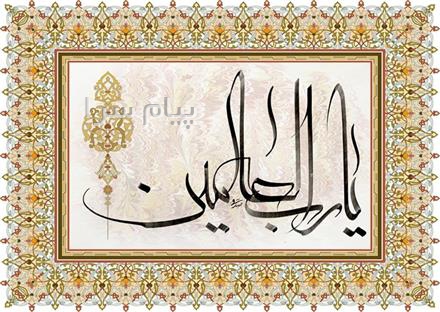 یا رب العالمین
پیام سرا